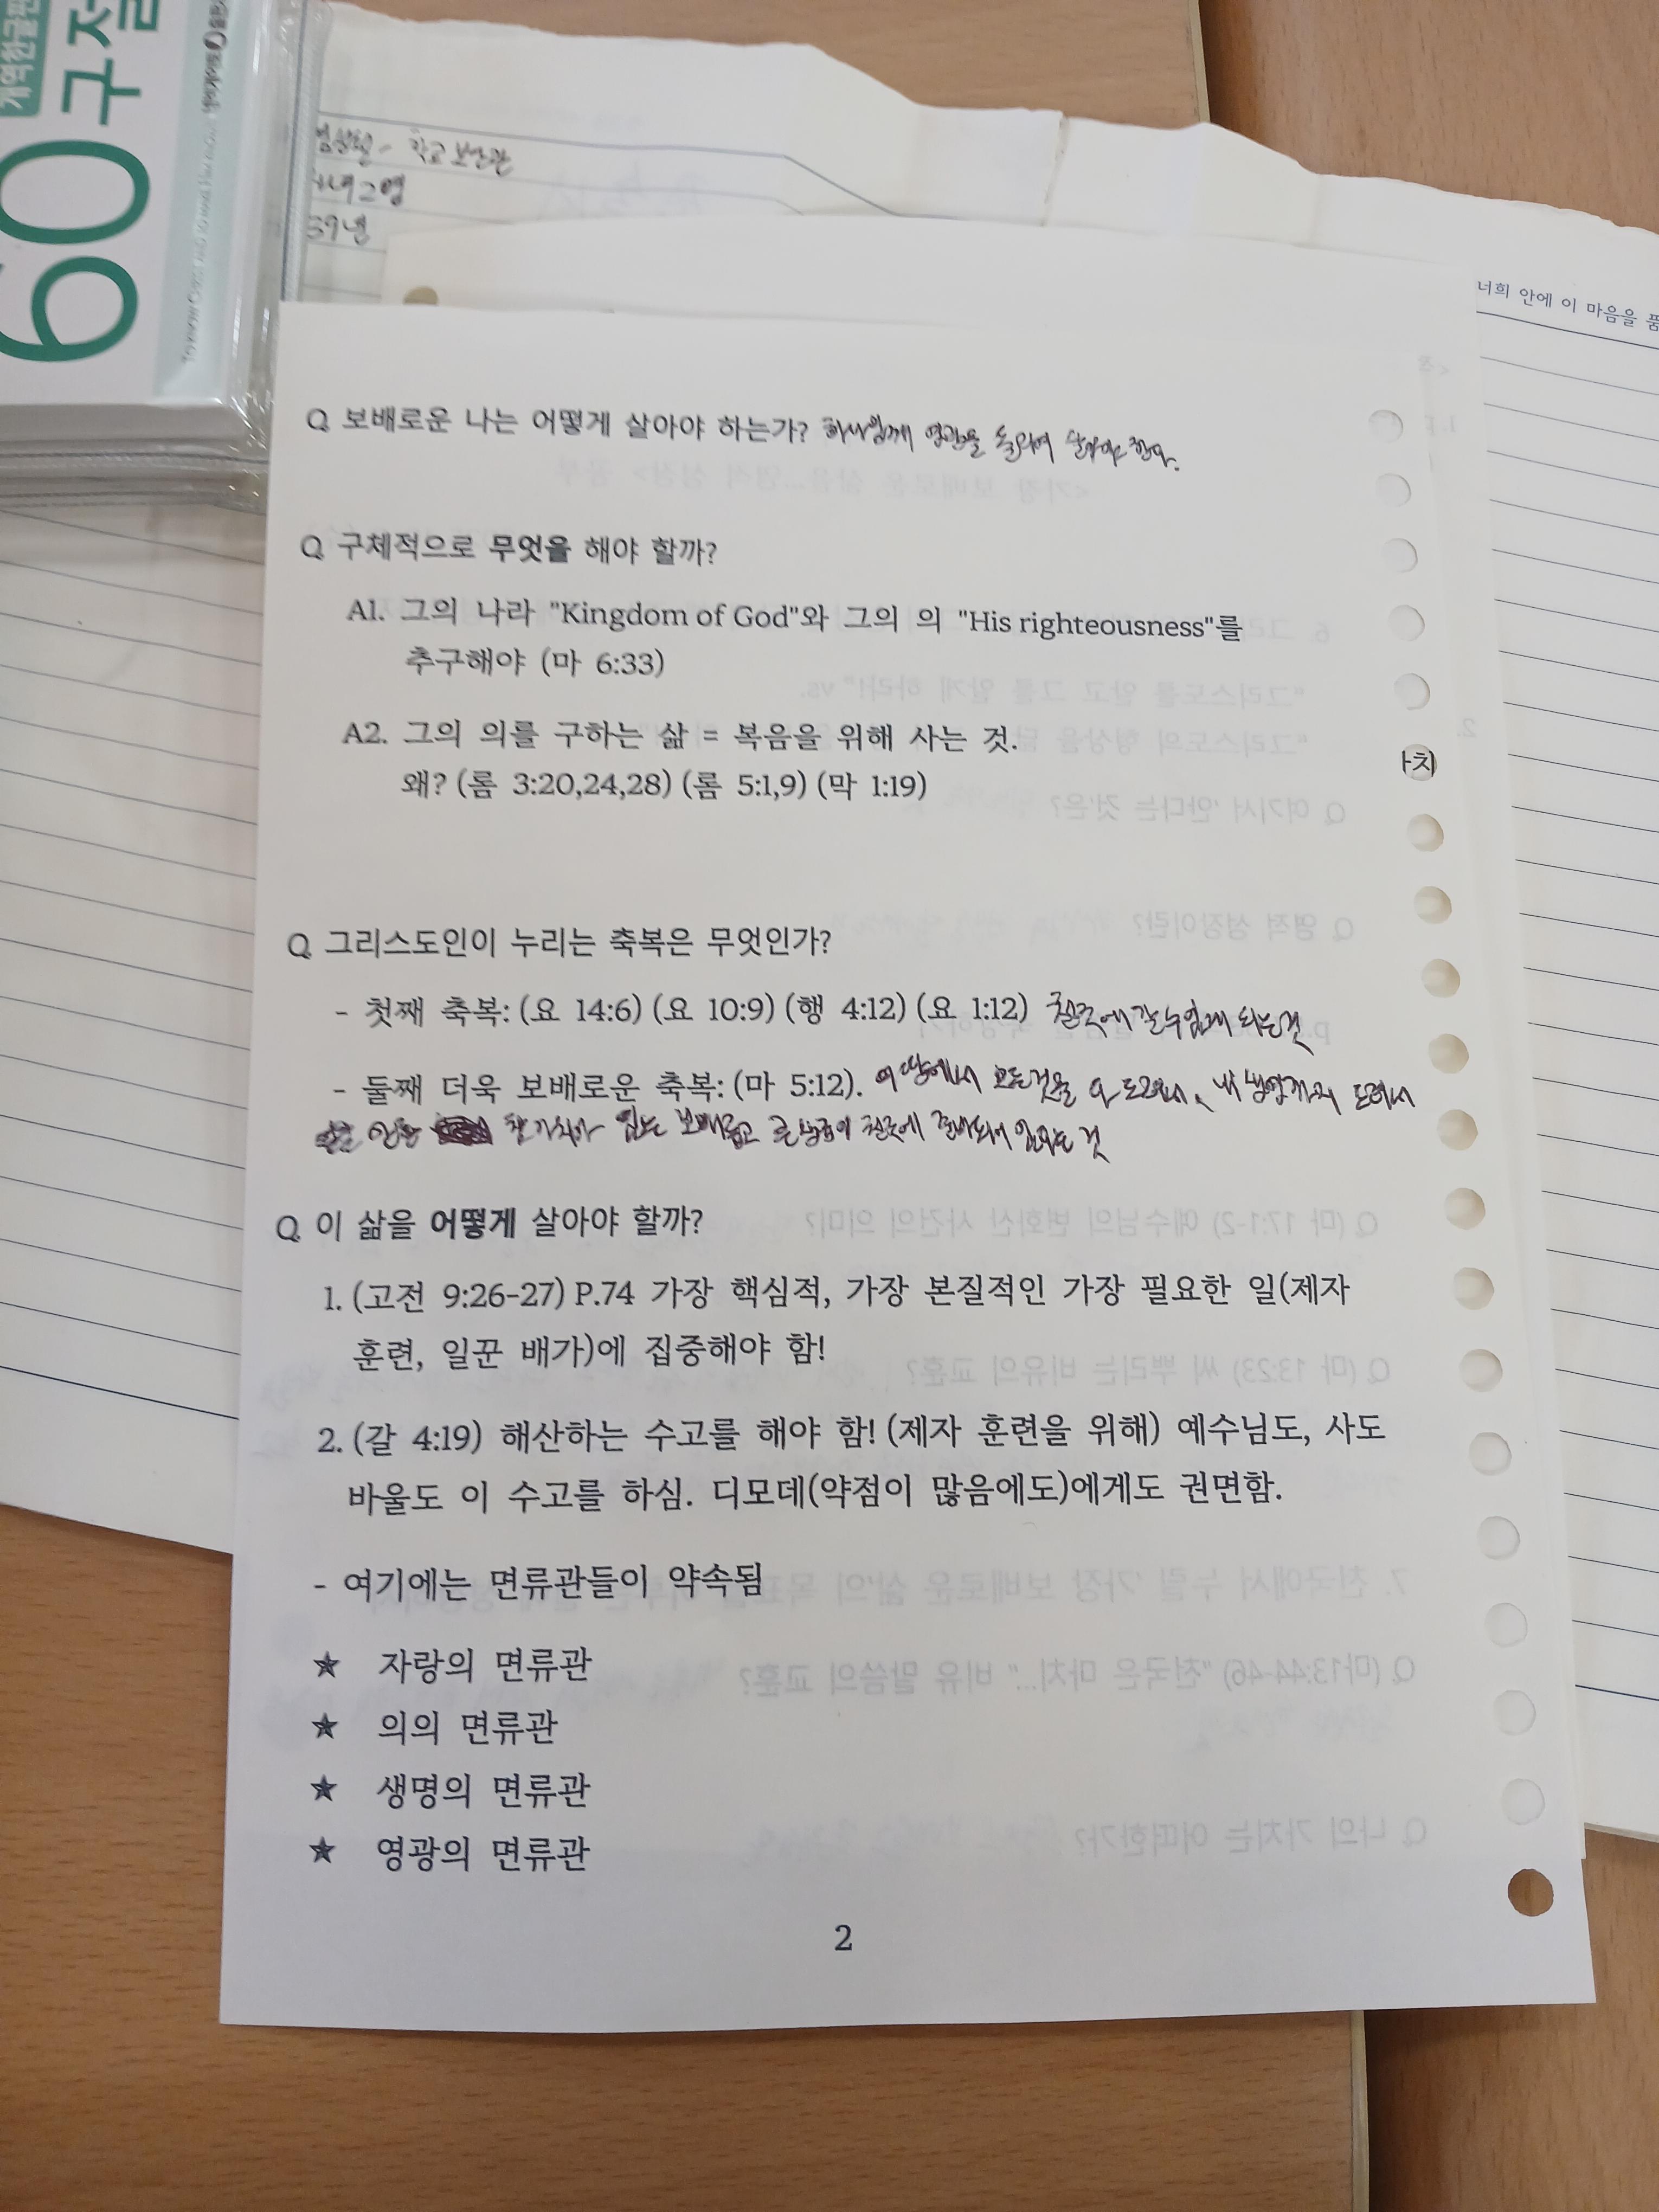 개역한글판
60구절
학교 보안관
너희 안에 이 마음을 품
Q. 보배로운 나는 어떻게 살아야 하는가? 하나님께 영광을 돌리며 살아야 한다.
Q. 구체적으로 무엇을 해야 할까?
A1. 그의 나라 "Kingdom of God"와 그의 의 "His righteousness"를
추구해야 (마 6:33)
A2. 그의 의를 구하는 삶 = 복음을 위해 사는 것.
왜? (롬 3:20,24,28) (롬 5:1,9) (막 1:19)
Q. 그리스도인이 누리는 축복은 무엇인가?
- 첫째 축복: (요 14:6) (요 10:9) (행 4:12) (요 1:12) 천국에 갈 수 있게 되는 것
- 둘째 더욱 보배로운 축복: (마 5:12). 이 땅에서 모든 것을 다 드려서, 내 생명까지 드려서
가치가 있는 보배롭고 큰 상급이 천국에 준비되어 있다는 것
Q. 이 삶을 어떻게 살아야 할까?
1. (고전 9:26-27) P.74 가장 핵심적, 가장 본질적인 가장 필요한 일(제자
훈련, 일꾼 배가)에 집중해야 함!
2. (갈 4:19) 해산하는 수고를 해야 함! (제자 훈련을 위해) 예수님도, 사도
바울도 이 수고를 하심. 디모데(약점이 많음에도)에게도 권면함.
- 여기에는 면류관들이 약속됨
★ 자랑의 면류관
★ 의의 면류관
★ 생명의 면류관
★ 영광의 면류관
2